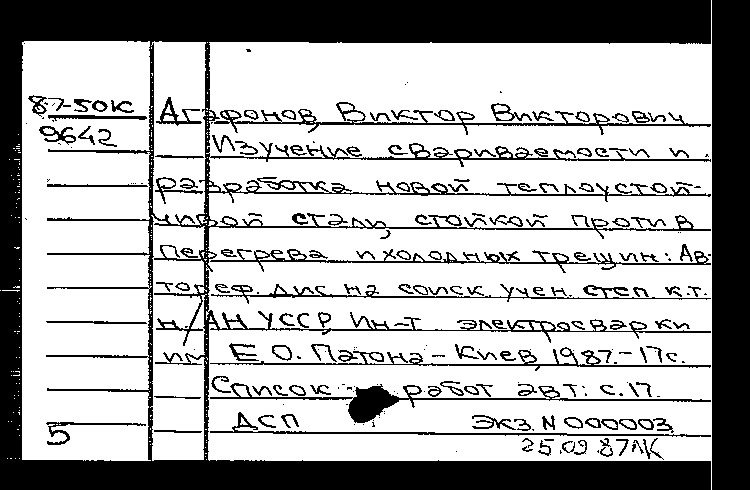 87-50К Агафонов, Виктор Викторович
9642 Изучение свариваемости и
разработка новой теплоустой-
чивой стали, стойкой против
перегрева и холодных трещин: Ав-
тореф. дис на соиск. учен. степ к.т.
н./АН УССР, Ин-т электросварки
им Е.О. Патона - Киев, 1987.-17с.
Список работ авт: с.17.
ДСП ЭКЗ. N 000003
5 25.09.87ЛК